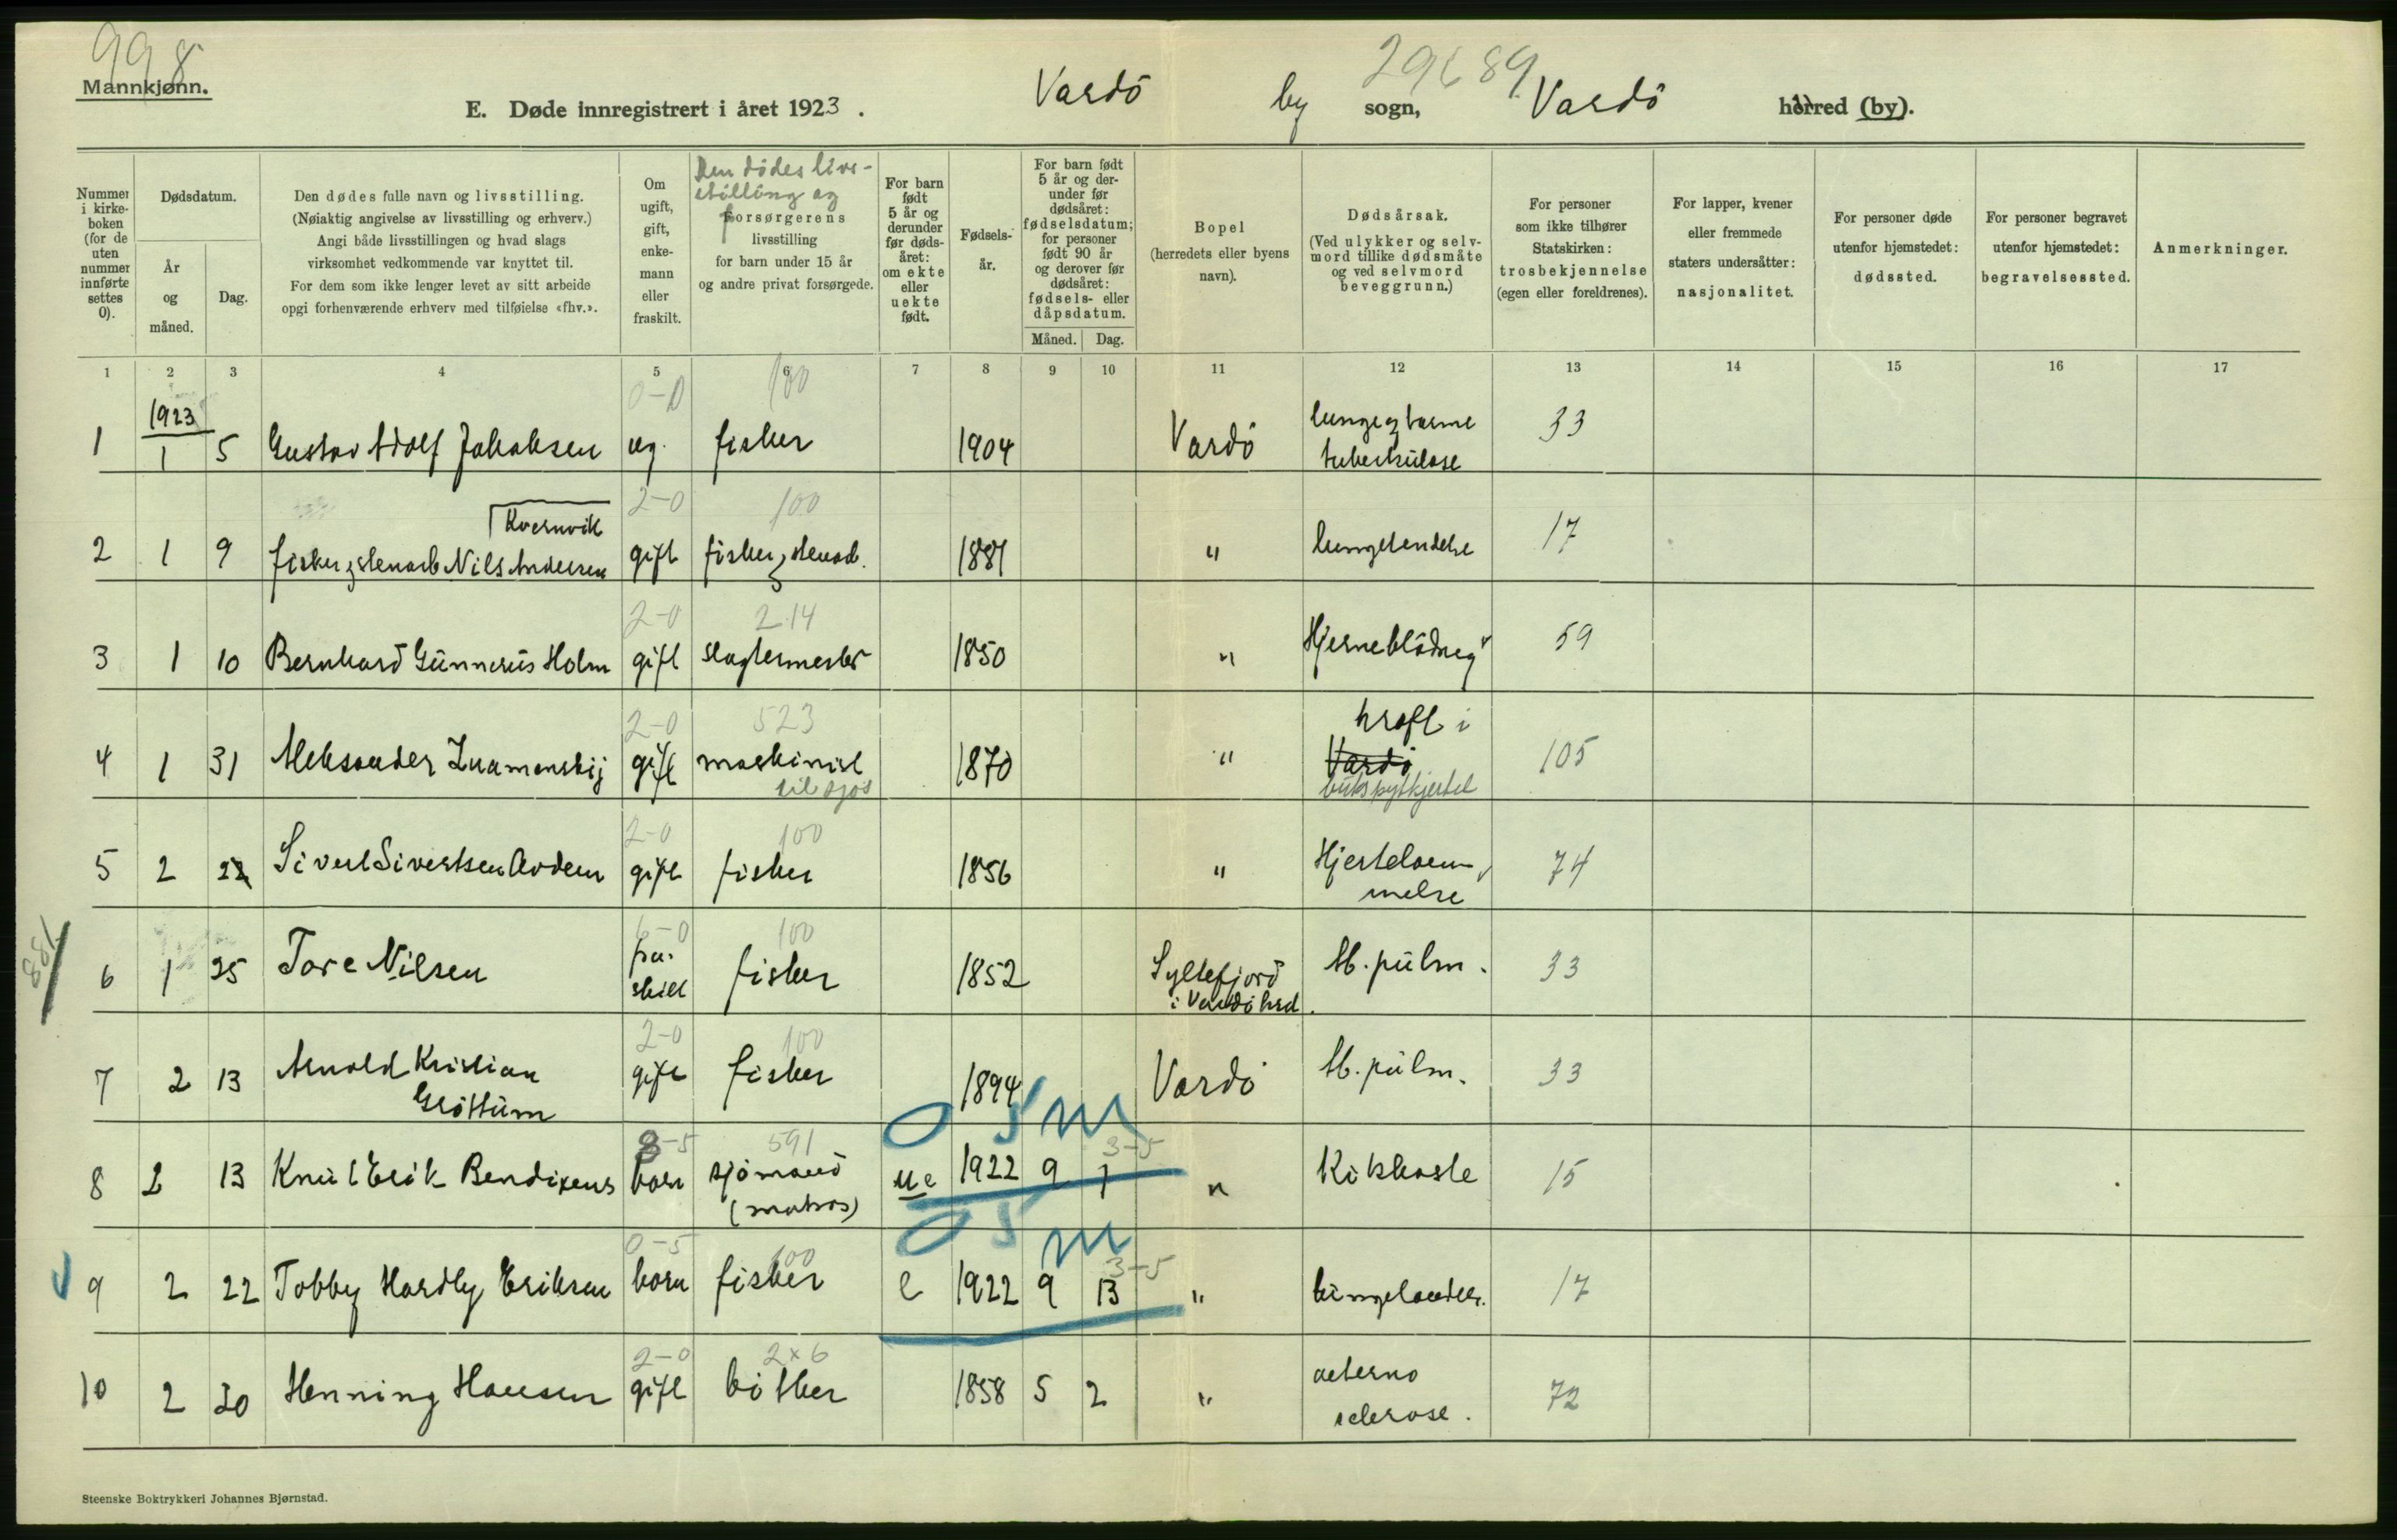 998
29689
Mannkjønn.
E. Døde innregistrert i året 1923. Vardö by sogn, Vardö herred (by).
Nummer i kirkeboken (for de uten nummer innførte settes 0).
Dødsdatum.
År og måned.
Dag.
Den dødes fulle navn og livsstilling.
(Nøiaktig angivelse av livsstilling og erhverv.)
Angi både livsstillingen og hvad slags
virksomhet vedkommende var knyttet til.
For dem som ikke lenger levet av sitt arbeide
opgi forhenværende erhverv med tilføielse «fhv.».
Om ugift, gift, enkemann eller fraskilt.
Den dödes livsstilling og
Forsørgerens
livsstilling
for barn under 15 år
og andre privat forsørgede.
For barn født 5 år og derunder før dødsåret: om ekte eller uekte født.
Fødselsår.
For barn født 5 år og derunder før dødsåret: fødselsdatum; for personer født 90 år og derover før dødsåret: fødsels- eller dåpsdatum.
Måned. Dag.
Bopel
(herredets eller byens
navn).
Dødsårsak.
(Ved ulykker og selvmord tillike dødsmåte og ved selvmord beveggrunn.)
For personer
som ikke tilhører
Statskirken:
trosbekjennelse
(egen eller foreldrenes).
For lapper, kvener
eller fremmede
staters undersåtter:
nasjonalitet.
For personer døde
utenfor hjemstedet:
dødssted.
For personer begravet
utenfor hjemstedet:
begravelsessted.
Anmerkninger.
1 2 3 4 5 6 7 8 9 10 11 12 13 14 15 16 17
1923 0-0 100
1 1 5 Gustav Adolf Jakobsen ug. fisker 1904 Vardö lunge og tarm tuberkulose 33
2-0 100
Kvernvik
2 1 9 fisker og stenarb Nils Andersen gift fisker og stenarb. 1881 " lungebetendelse 17
2-0 214
3 1 10 Bernhard Gunnerius Holm gift slagtermester 1850 " Hjerneblödning 59
2-0 523
4 1 31 Aleksander Znamenskij gift maskinist til sjös 1870 " kræft i Vardö bukspytkjertel 105
2-0 100
5 2 22 Sivert Sivertsen gift fisker 1856 " Hjertelammelse 74
6-0 100
6 1 25 Tore Nilsen fraskilt fisker 1852 Syltefjord i Vardö hrd. tb. pulm. 33
2-0 100
7 2 13 Arnold Kristian Gröttum gift fisker 1894 Vardö tb. pulm. 33
0 5 m
8-5 591 3-5
8 2 13 Knut Erik Bendixens barn sjömand (matros) ue 1922 9 1 " Kikhoste 15
0 5 m
0-5 100 3-5
9 2 22 Tobby Hardly Eriksen barn fisker e 1922 9 13 " 17
2-0 2x6
10 2 20 Henning Hansen gift bötker 1858 5 2 " arteriosclerose. 72
Steenske Boktrykkeri Johannes Bjørnstad.